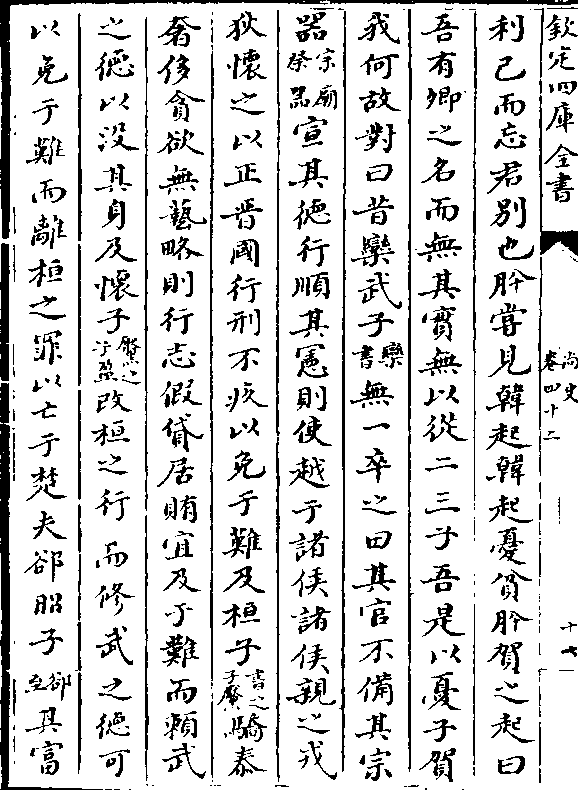 欽定四庫全書
尚史
卷四十二
十七
利己而忘君別也肸嘗見韓起韓起憂貧肸賀之起曰
吾有卿之名而無其實無以從二三子吾是以憂子賀
我何故對曰昔欒武子欒書無一卒之田其官不備其宗
器宗廟祭器宣其德行順其憲則使越于諸侯諸侯親之戎
狄懷之以正晉國行刑不疚以免于難及桓子書之子黶驕泰
奢侈貪欲無藝略則行志假貸居賄宜及于難而賴武
之德以没其身及懷子黶之子盈改桓之行而修武之德可
以免于難而離桓之罪以亡于楚夫郤昭子郤至其富